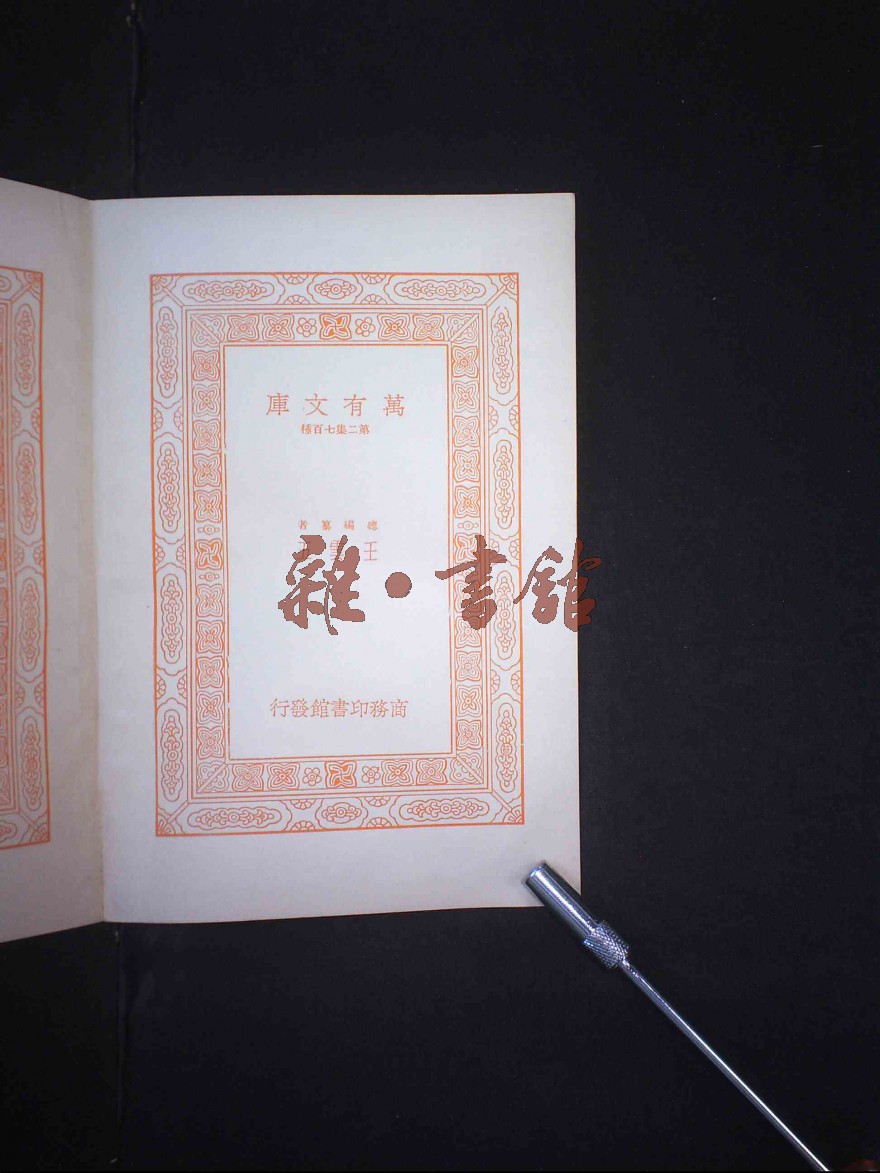 萬有文庫
第二集七百種
總編纂者
王雲五
雜·書館
商務印書館發行